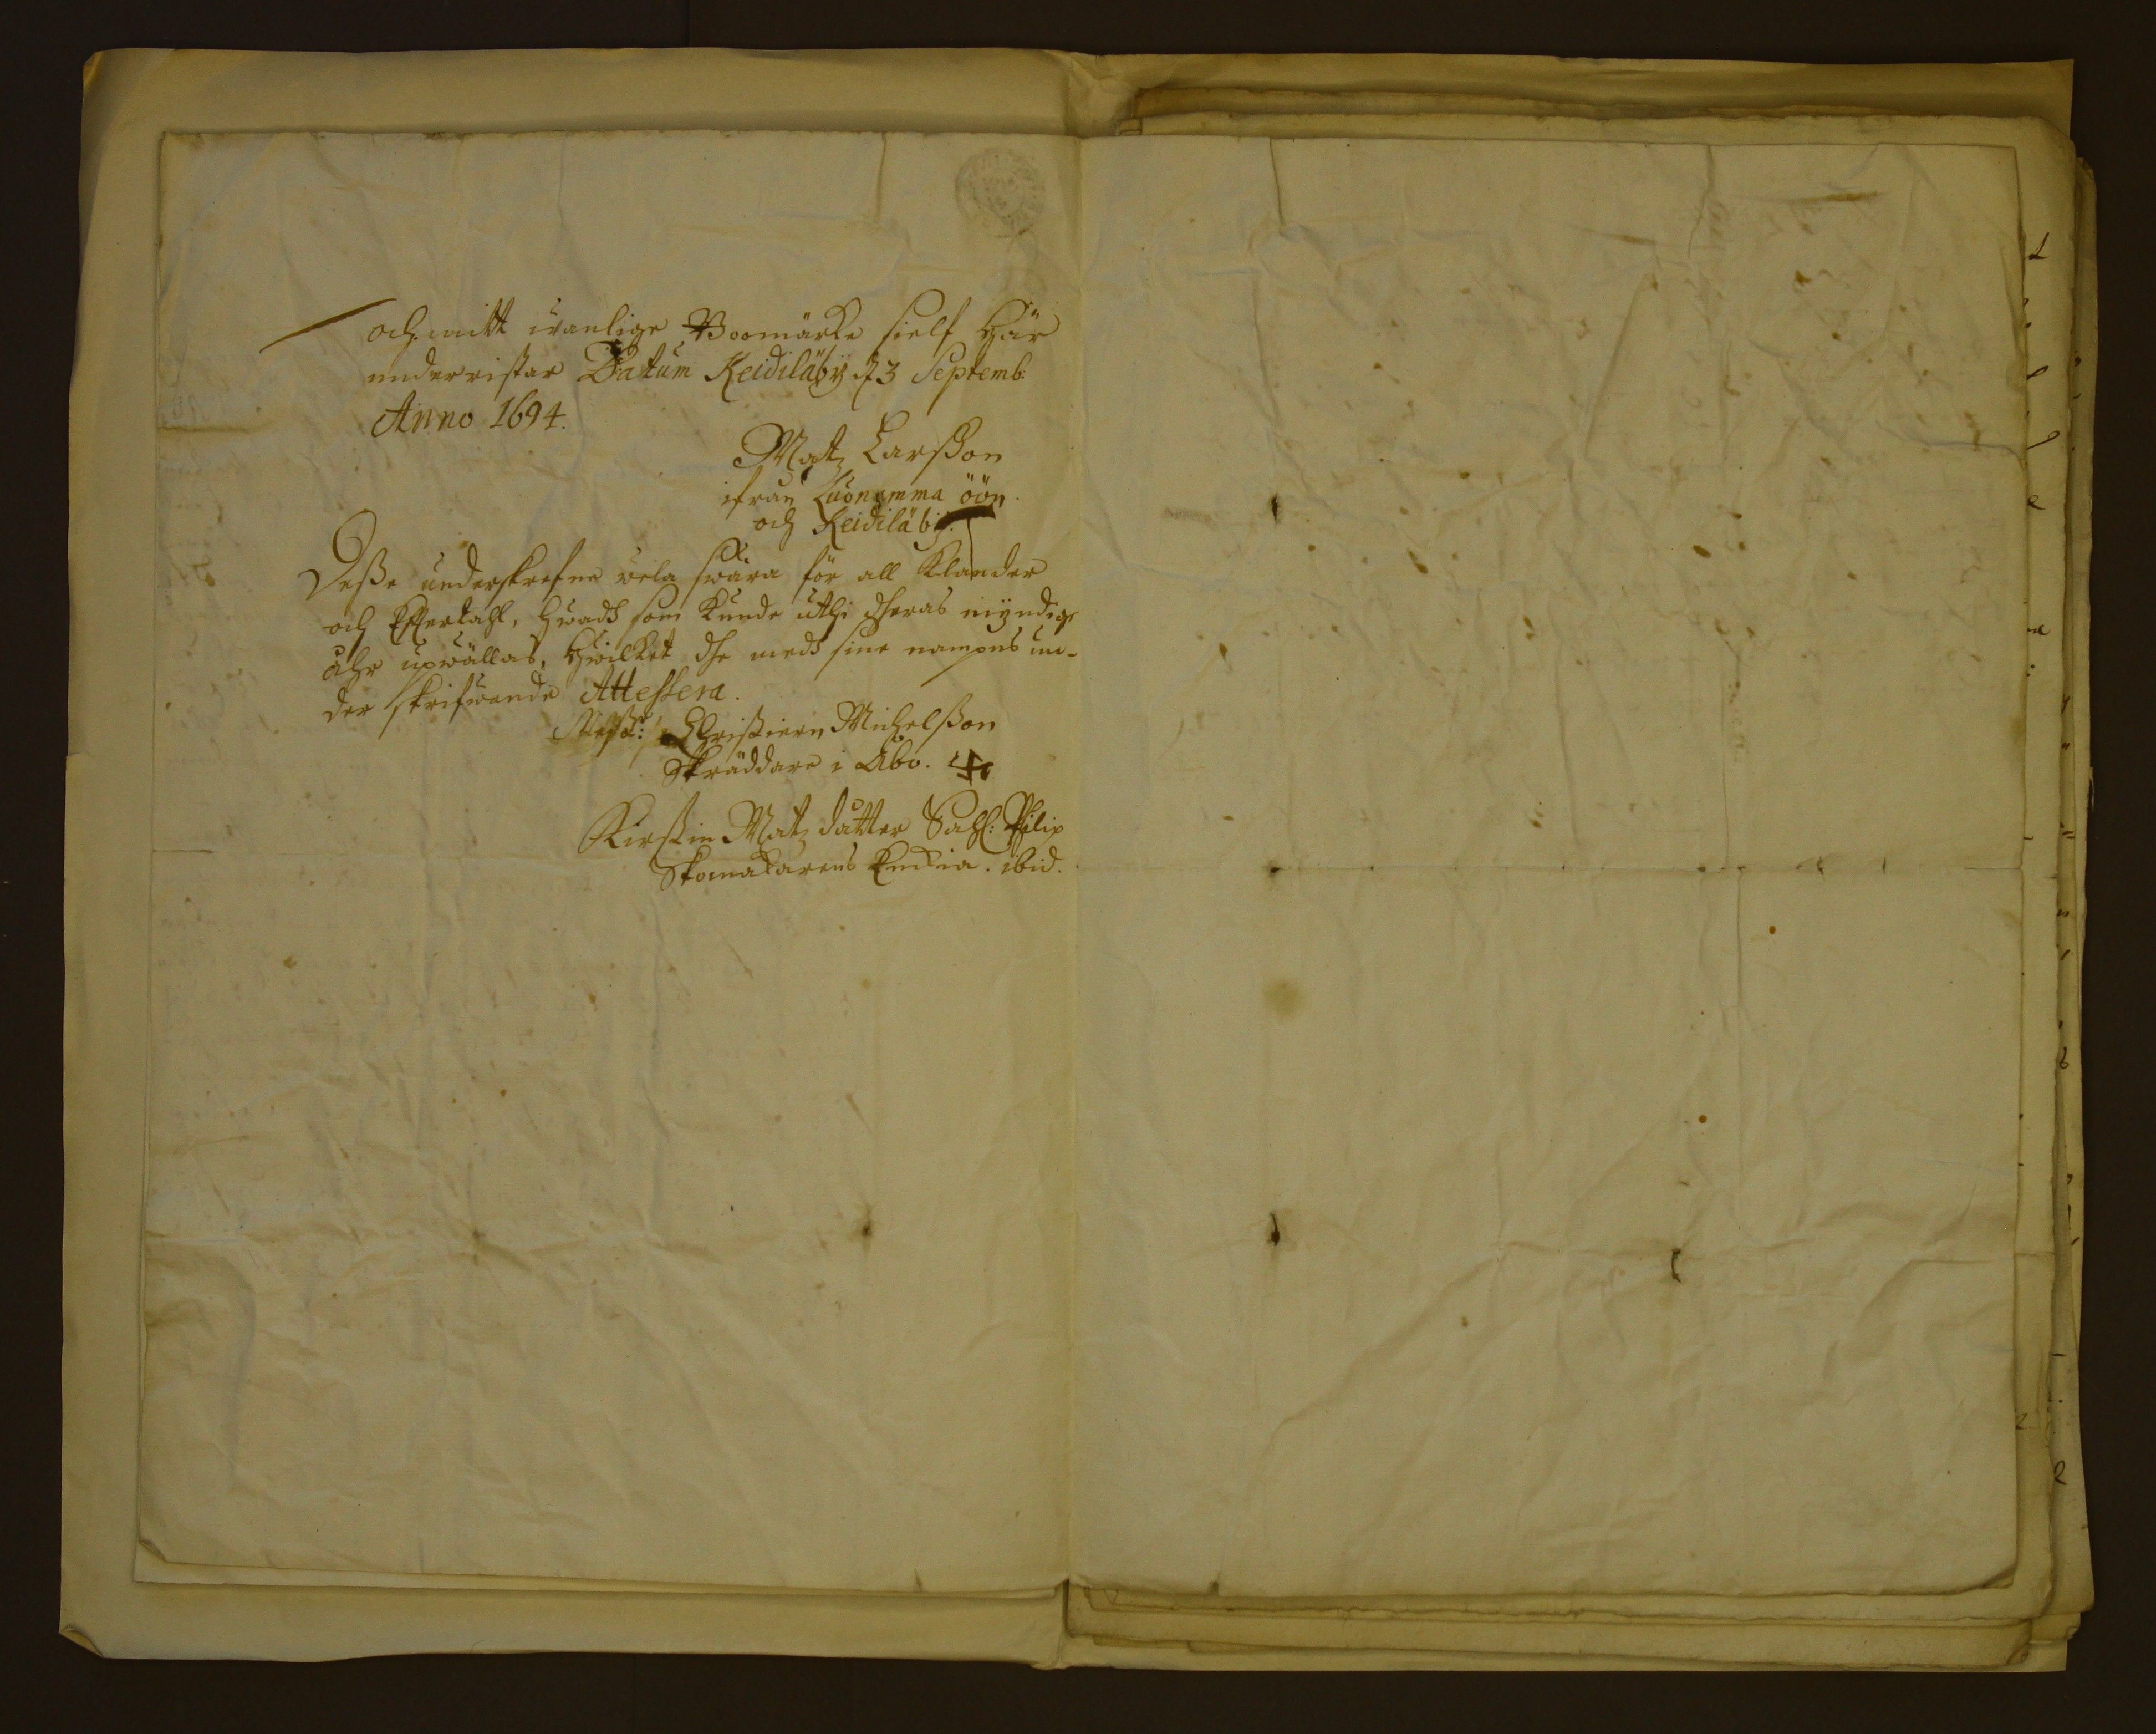 och mitt wanlige Boomärke sielf här
underristar Datum Keidiläby d 3 Septemb:
Anno 1694.
Matz Larsson
ifrån Luonomma öön.
och Keidiläby.
Desse underskrefne wela swara för all klander
och effertahl, hwadh som kunde uthi dheras myndige
åhr upwällas, hwilket dhe medh sine nampns un-
der skrifwande Attestera.
Mest: Christiern Michelsson
Skräddare i Åbo.
Kirstin Matz dotter Sahl: Philip
Skomakarens Enckia. ibid.